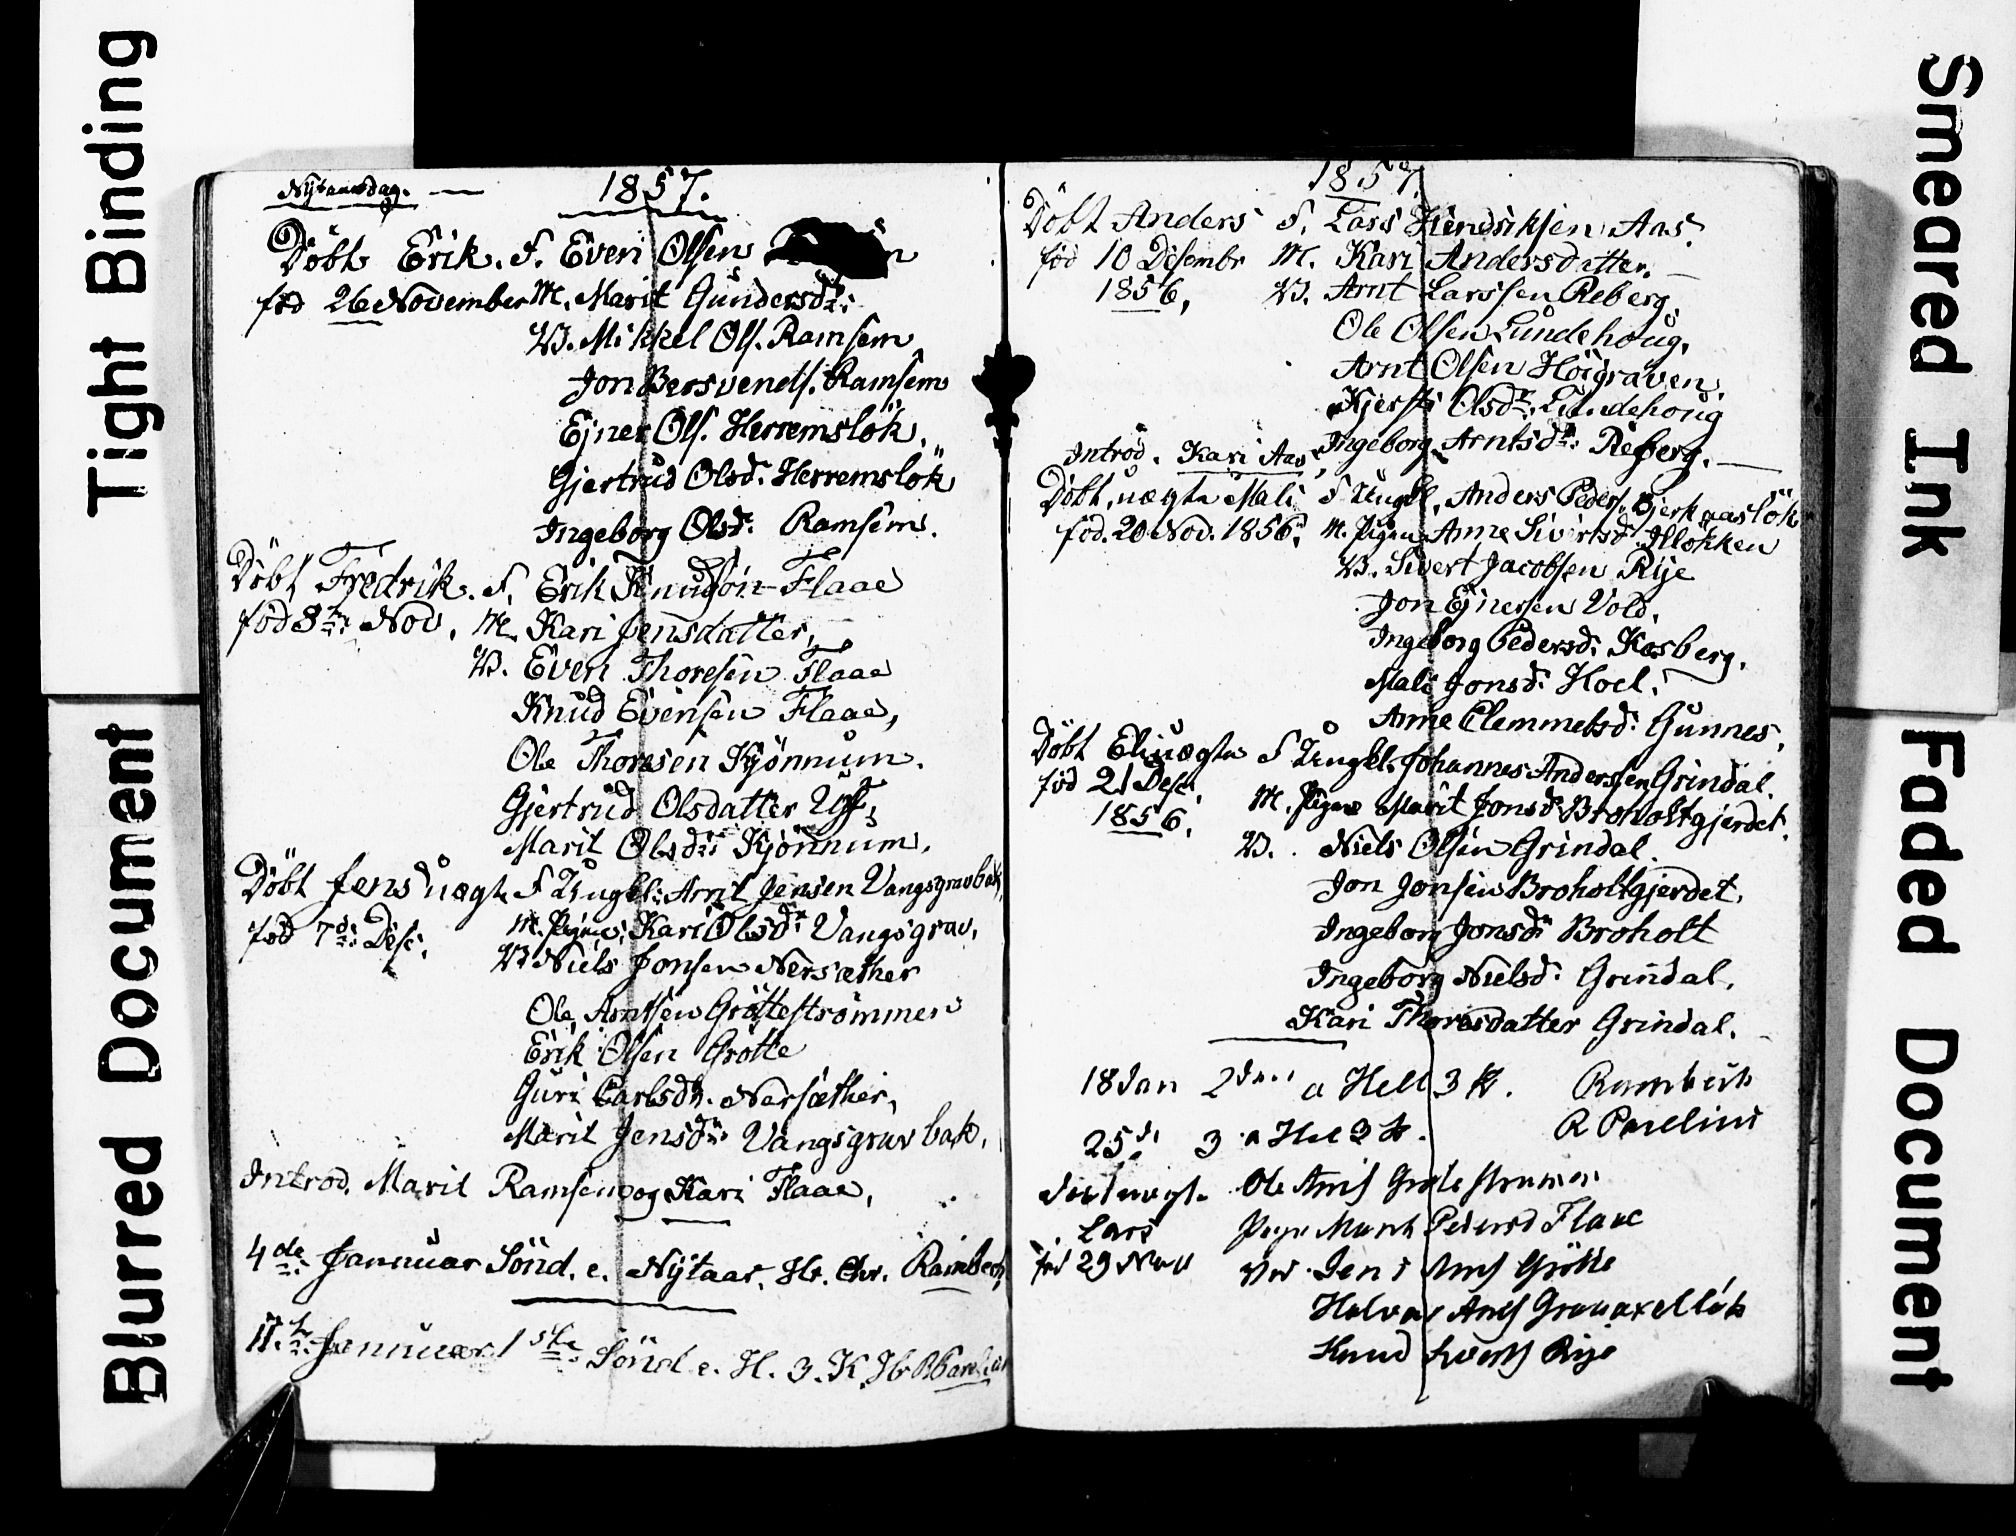 Tight Binding
Blurred Document
Nytaarsdag. — 1857.
Döbt Erik. F. Even Olsen
fød 26 November M. Marit Gundersdr:
W. Mikkel Ols. Ramsem
Jon Bersvends. Ramsem
Ejner Ols. Herremslök.
Gjertrud Olsd. Herremslök
Ingeborg Olsd: Ramsem.
Döbt Fredrik. F. Erik Knudsön Flaae
fød 8de Nov. M. Kari Jensdatter,
W. Even Thoresen Flaae
Knud Evensen Flaae,
Ole Thoresen Kjönnum.
Gjertrud Olsdatter Uff,
Marit Olsdr: Kjönnum,
Döbt Jens uægte F Ungkl: Arnt Jensen Vangsgravbak,
fød 7de: Des: M. Pigen: Kari Olsdr Vangsgrav,
W Niels Jonsen Nersæther
Ole Arntsen Grötteströmmen
Erik Olsen Grötte
Guri Carlsdr. Nersæther,
Marit Jensdr: Vangsgravbak,
Introd. Marit Ramsem og Kari Flaae,
4de Januar Sönd. e. Nytaar. Hr. Chr. Rambech
11te Januar 1ste Sönd e. H. 3. K. Hr
1857.
Döbt Anders F. Lars Hendriksen Aas.
fød 10 Desembr M. Kari Andersdatter. —
1856, W. Arnt Larssen Reberg.
Ole Olsen Lundehoug,
Arnt Olsen Höigraven
Kjersti Olsdr. Lundehoug
Introd. Kari Aas, Ingeborg Arntsdr: Reberg. —
Döbt, uægte Mali F Ungkl. Anders Peders. Bjerkaaslök
fød. 20 Nov. 1856. M. Pigen Anne Sivertsd. Illökken
W. Sivert Jacobsen Rije
Jon Ejnersen Vold.
Ingeborg Pedersd: Kosberg.
Mali Jonsd: Hoel.
Anne Clemmetsd: Gunnes,
Döbt Eli uægte F Ungkl. Johannes Andersen Grindal.
fød 21 Des: M. Pigen Marit Jonsd Broholtgjerdet.
1856. W. Niels Olsen Grindal.
Jon Jonsen Broholtgjerdet.
Ingeborg Jonsdr Broholt
Ingeborg Nielsd: Grindal.
Kari Thoresdatter Grindal.
18 Jan 2den e Hell 3 K. Rambech
25de 3 e Hel 3 K.
Ole Arnts
Lars Pige Marit Pedersd Flaae
fød 29 Nov Jens Arnts Grötte
Halvor
Knud Siverts Rije
Smeared Ink
Faded Document